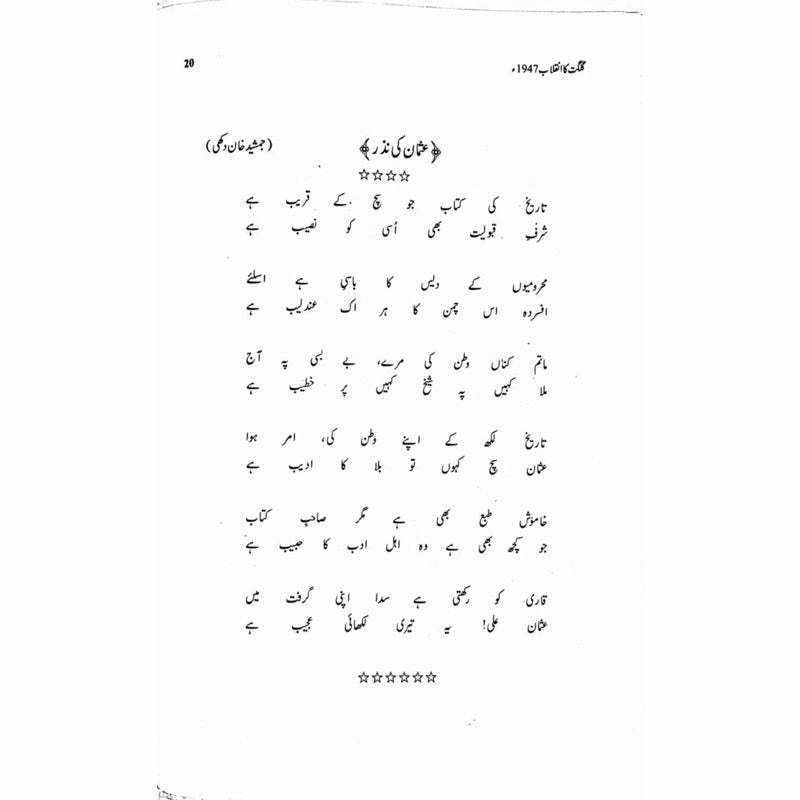 گلگت کا انقلاب 1947ء
20
﴿عثمان کی نذر﴾
(جمشید خان دکھی)
☆☆☆☆
تاریخ کی کتاب جو سچ کے قریب ہے
شرفِ قبولیت بھی اُسی کو نصیب ہے
محرومیوں کے دیس کا باسی ہے اسلئے
افسردہ اس چمن کا ہر اک عندلیب ہے
ماتم کناں وطن کی مرے، بے بسی پہ آج
ملا کہیں پہ شیخ کہیں پر خطیب ہے
تاریخ لکھ کے اپنے وطن کی، امر ہوا
عثمان سچ کہوں تو بلا کا ادیب ہے
خاموش طبع بھی ہے مگر صاحب کتاب
جو کچھ بھی ہے وہ اہل ادب کا حبیب ہے
قاری کو رکھتی ہے سدا اپنی گرفت میں
عثمان علی! یہ تیری لکھائی عجیب ہے
☆☆☆☆☆☆